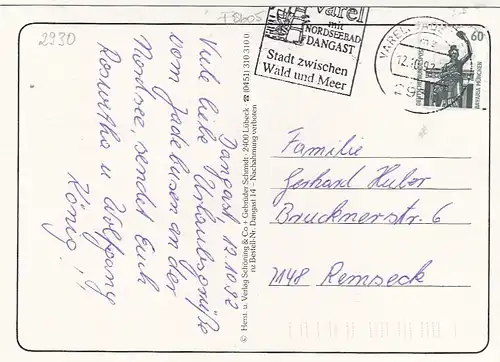 2930
F5005
Varel
mit
NORDSEEBAD
DANGAST
Stadt zwischen
Wald und Meer
VAREL, JADE
12.10.92
29
60
BAVARIA MÜNCHEN
Dangast, 12.10.92
Viele liebe Urlaubsgrüße
vom Jadebusen an der
Nordsee, sendet Euch
Roswitha u. Wolfgang
König!
© Herst. u. Verlag Schöning & Co + Gebrüder Schmidt · 2400 Lübeck · ☎ (0451) 310 310 0
nz Bestell-Nr. Dangast 14 – Nachahmung verboten
Familie
Gerhard Huber
Brucknerstr. 6
7148 Remseck